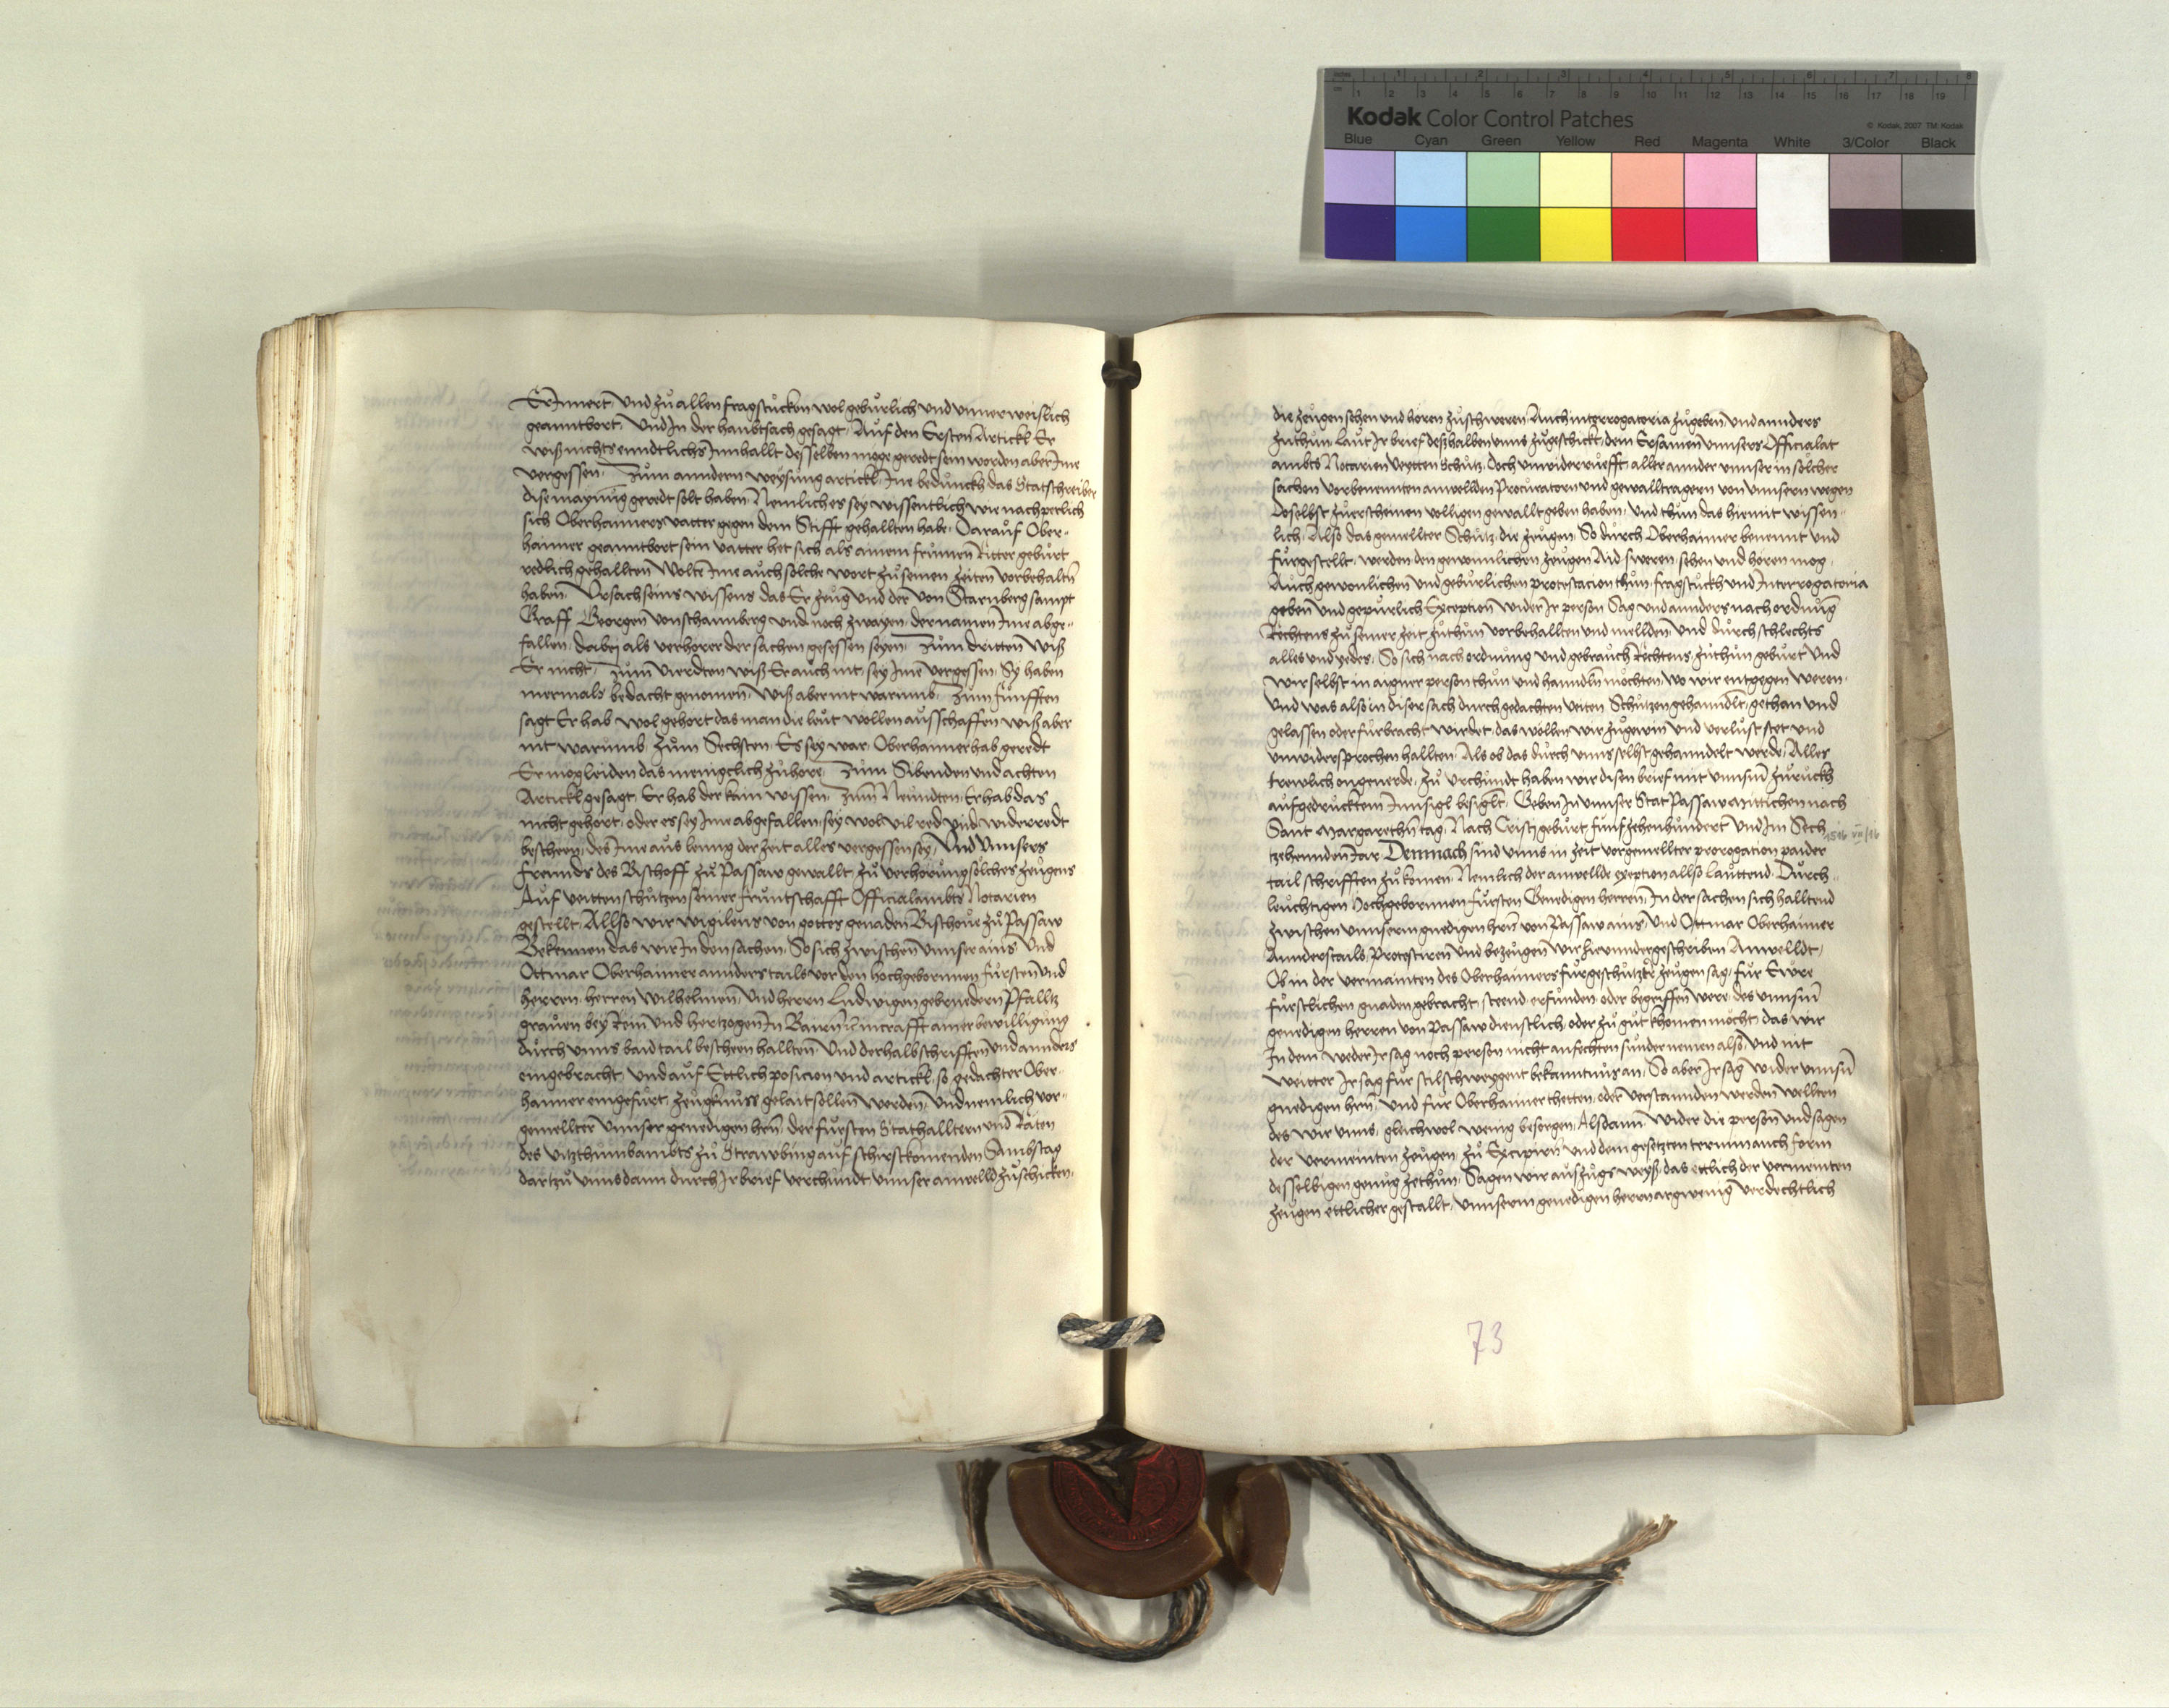 Erynnert, Vnd zů allen fragstucken wol gebůrlich vnd vnuerweislich
geanntbort. Vnd In der haubtsach gesagt. Auf den Ersten Artickl Er
wiß nichts enndtlichs Innhallt desselben möge geredt sein worden aber Ime
vergessen. Zum anndern weysung artickl, Ine bedůnckh das Statschreiber
dise maynūng geredt solt haben. Nemlich es sey wissentlich wie nachperlich
sich Oberhaimers vatter gegen dem Stifft gehallten habe. Darauf Ober-
haimer geanntbort sein vatter het sich als ainem frumen Ritter gebůrt
redlich gehallten Wolte Ime auch solche wort zů seinen zeiten vorbehaltn̄
haben. Vrsach seins wissens das Er zeug vnd der von Starnberg sampt
Graff Georgen von schaunberg vnd noch zwayen, der namen Ime abge-
fallen, dabej als verhörer der sachen gesessen seyen. Zum dritten wiß
Er nicht. Zum Vierdten wiß Er auch nit, sey Ime vergessen. Sy haben
mermals bedacht genomen, wiß aber nit warumb. Zum fünfften
sagt Er hab wol gehört das man die leut wollen ausschaffen wiß aber
nit warumb. Zum Sechsten. Es sey war, Oberhaimer hab geredt
Er mög leiden das menigclich zůhöre. Zum Sibenden vnd achten
Artickl gesagt. Er hab der kain wissen. Zum Neundten. Er hab das
nicht gehört, oder es sey Ime abgefallen, sey wol vil red vnd widerredt
bescheen, des Ime aus leung der zeit alles vergessen sey. Vnd vnnsers
freunds des Bischoff zů Passaw gewallt zů verhörung solches zeugens
Auf veitten schützen seiner früntschafft Officialambts Notarien
gestellt. Allso Wir Wigileus von gottes genaden Bischoue zů Passaw
Bekennen das wir In den sachen, So sich zwischen vnnser ains Vnd
Ottmar Oberhaimer annders tails vor den hochgebornnen fürsten vnd
herren, herren Wilhelmen, Vnd herrn Ludwigen gebruedern Pfalltz
grauen bey Rein vnd hertzogen In Bairn ꝛc in crafft ainer bewilligung
durch vnns baid tail bescheen hallten. Vnd derhalb schrifften vnd annders
eingebracht, vnd auf Ettlich posicion vnd artickl, so gedachter Ober-
haimer eingefürt, zeugknuss gelait sollen werden. Vnd nemlich vor-
gemellter vnnser genedigen hrn̄ der fürsten Stathalltern vnd Räten
des vitzthumbambts zů Strawbing auf schirstkomenden Sambstag
dartzů vnns dann durch Ir brief verchundt vnnser anwelld zůschicken,
die zeugen sehen vnd hören zůschweren. Auch interrogatoria zůgeben, vnd annders
zuthun, laut Ir brief deßhalben vnns zůgeschickt, dem Ersamen vnnsers Official at
ambts Notarien Veytten Schütz, doch vnwiderruefft allter annder vnnser in solher
sachen vorbenennten anwellden Procuratorn vnd gewalltragern von vnnsern wegen
doselbst zůerscheinen völligen gewallt geben haben. Vnd thun das hiemit wissen-
lich. Also das gemellter Schütz, die zeugen, So durch Oberhaimer benennt vnd
fürgestellt, werden den gewonnlichen zeugen Aid sweren, sehen vnd hören mög.
Auch gewonlichen vnd gebürlichen protestacion thun, fragstuckh vnd Interrogatoria
geben vnd gepürlich Exception wider Ir person Sag vnd annders nach ordnūng
Rechtens zů seiner zeit zůthun vorbehallten vnd mellden. Vnd durch schlechts
alles vnd yedes, So sich nach ordnung vnd gebrauch Rechtens, zuthun gebürt Vnd
wir selbst in aigner person thun vnd hanndln̄ möchten, wo wir entgegen weren.
Vnd was also in diser sach durch gedachten Veiten Schützen gehanndlt, gethan vnd
gelassen oder fürbracht wirdet, das wollen wir zů gewin vnd verlust stet vnd
vnwidersprochen hallten. Als ob das durch vnns selbst gehanndelt werde, Alles
trewlich ongeuerde. Zů vrchundt haben wir disen brief mit vnnserm zuruckh
aufgedrucktem Innsigl besiglt. Geben In vnnser Stat Passaw Mittichen nach
Sant Margarethn̄ tag. Nach Cristj gebürt fünfzehenhundert vnd Im Sech
tzehennden Jar. Demnach sind vnns in zeit vorgemellter prorogation paider
tail schrifften zů komen. Nemlich der anwellde exeption allso lauttend. Durch-
leuchtigen Hochgebornnen fürsten Genedigen herren. In der sachen sich halltend
zwischen vnnserm gnedigen hrn̄ von Passaw ains, Vnd Ottmar Oberhaimer
Annderstails, Protestiren vnd bezeugen wir hieunndergeschriben Anwelldt,
Ob in der vermainten des Oberhaimers fürgeschützte zeugen sag, für Ewre
fürstlichen gnaden gebracht, steend, erfunden oder begriffen were, des vnnserm
genedigen herren von Passaw dienstlich oder zů gut khomen möcht, das wir
In dem weder Ir sag noch person nicht anfechten sunder nemen also, vnd nit
weitter Ir sag für stilschweygent bekanntnus an. So aber Ir sag wider vnnsern
gnedigen hrn̄, vnd für Oberhaimer thetten oder verstannden werden wellten
des wir vnns, gleichwol wenig besorgen. Alsdann wider die person vnd sagen
der vermeinten zeugen, zů Excipirn̄ vnd dem gesetzten termin auch form
desselbigen genug zethun. Sagen wir auszugs weyß, das ettlich der vermeinten
zeugen ettlicher gestallt, vnnserm genedigen herrn argwenig verdechtlich
1516 VII/16
73
Kodak Color Control Patches
© Kodak, 2007 TM: Kodak
Blue Cyan Green Yellow Red Magenta White 3/Color Black